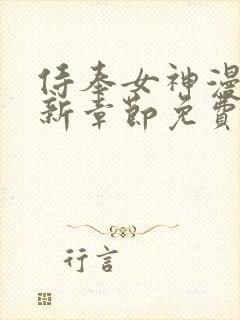 侍奉女神漫
新章節免費
行言